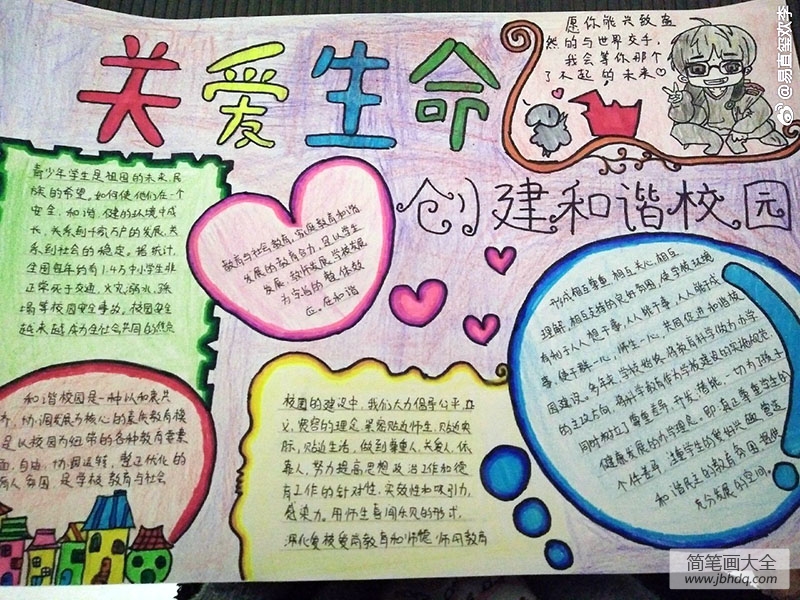 关爱生命
愿你能兴致盎
然的与世界交手，
我会等你那个
了不起的未来
@易直玺欢李
创建和谐校园
青少年学生是祖国的未来，民
族的希望。如何使他们在一个
安全、和谐、健的环境中成
长，关系到千家万户的发展，关
系到社会的稳定。据统计，
全国每年约有1.4万中小学生非
正常死于交通、火灾、溺水、
等校园安全事故。校园安全
越来越成为全社会共同的焦点
教育与社会教育、家庭教育和谐
发展的教育合力，是以学生
发展、教师发展、学校发展
为宗旨的整体效
应。在和谐
形成相互尊重，相互关心，相互
理解，相互支持的良好氛围，使学校环境
有利于人人想干事，人人能干事，人人能干成
事，使干群一心，师生一心，共同促进和谐校
园建设。多年来，学校始终
的主攻方向，
同时树立了尊重差异、开发潜能、一切为了孩子
健康发展的办学理念，即：真正尊重学生的
个性差异，注重学生的
和谐民主的教育氛围，提供
充分发展的空间。
和谐校园是一种以和衷共
济、协调发展为核心的素质教育模
是以校园为纽带的各种教育要素
面、自由、协调运转、整体优化的
育人氛围，是学校教育与社会
校园的建设中，我们大力倡导公平、正
义、宽容的理念，紧密贴近师生，贴近实
际，贴近生活，做到尊重人、关爱人、依
靠人，努力提高思想政治工作和德
育工作的针对性、实效性和吸引力、
感染力。用师生喜闻乐见的形式，
深化爱校爱岗教育和师德师风教育
简笔画大全
www.jbhdq.com